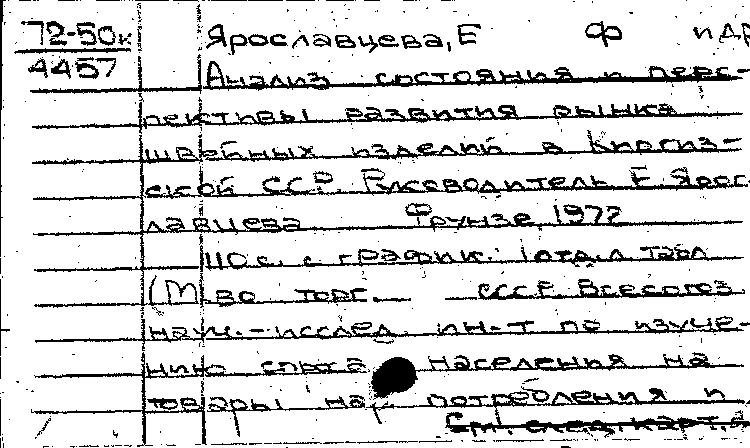 72-50к
4457
Ярославцева, Е Ф и др
Анализ состояния и перс-
пективы развития рынка
швейных изделий в Киргиз-
ской ССР. Руководитель Е. Ярос-
лавцева Фрунзе, 1972
110 с. с график.; 1 отд. л табл
(М-во торг. СССР. Всесоюз
науч.-исслед. ин-т по изуче-
нию спроса населения на
товары нар потребления и
См. след. карт.